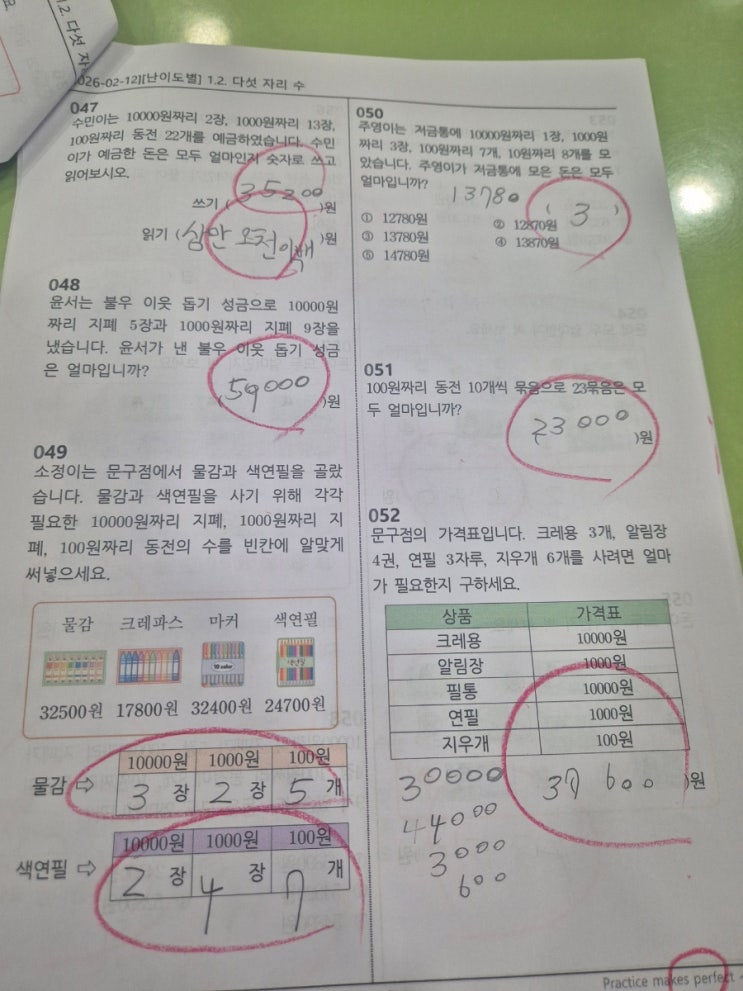 1.2. 다섯 자
026-02-12][난이도별] 1.2. 다섯 자리 수
047
수민이는 10000원짜리 2장, 1000원짜리 13장,
100원짜리 동전 22개를 예금하였습니다. 수민
이가 예금한 돈은 모두 얼마인지 숫자로 쓰고
읽어보시오.
쓰기 ( 35200 )원
읽기 ( 삼만 오천이백 )원
048
윤서는 불우 이웃 돕기 성금으로 10000원
짜리 지폐 5장과 1000원짜리 지폐 9장을
냈습니다. 윤서가 낸 불우 이웃 돕기 성금
은 얼마입니까?
( 59000 )원
049
소정이는 문구점에서 물감과 색연필을 골랐
습니다. 물감과 색연필을 사기 위해 각각
필요한 10000원짜리 지폐, 1000원짜리 지
폐, 100원짜리 동전의 수를 빈칸에 알맞게
써넣으세요.
물감 크레파스 마커 색연필
32500원 17800원 32400원 24700원
10000원 1000원 100원
물감 ⇨ 3 장 2 장 5 개
10000원 1000원 100원
색연필 ⇨ 2 장 4 장 7 개
050
주영이는 저금통에 10000원짜리 1장, 1000원
짜리 3장, 100원짜리 7개, 10원짜리 8개를 모
았습니다. 주영이가 저금통에 모은 돈은 모두
얼마입니까?
13780
( 3 )
① 12780원 ② 12870원
③ 13780원 ④ 13870원
⑤ 14780원
051
100원짜리 동전 10개씩 묶음으로 23묶음은 모
두 얼마입니까?
( 23000 )원
052
문구점의 가격표입니다. 크레용 3개, 알림장
4권, 연필 3자루, 지우개 6개를 사려면 얼마
가 필요한지 구하세요.
상품 가격표
크레용 10000원
알림장 1000원
필통 10000원
연필 1000원
지우개 100원
30000
37600 )원
44000
3000
600
Practice makes perfect